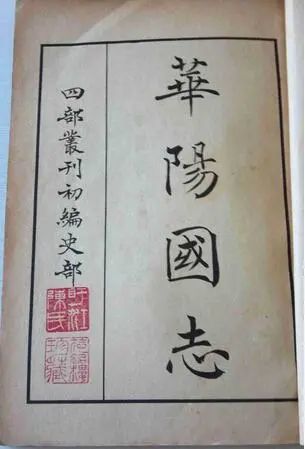 華陽國志
四部叢刊初編史部